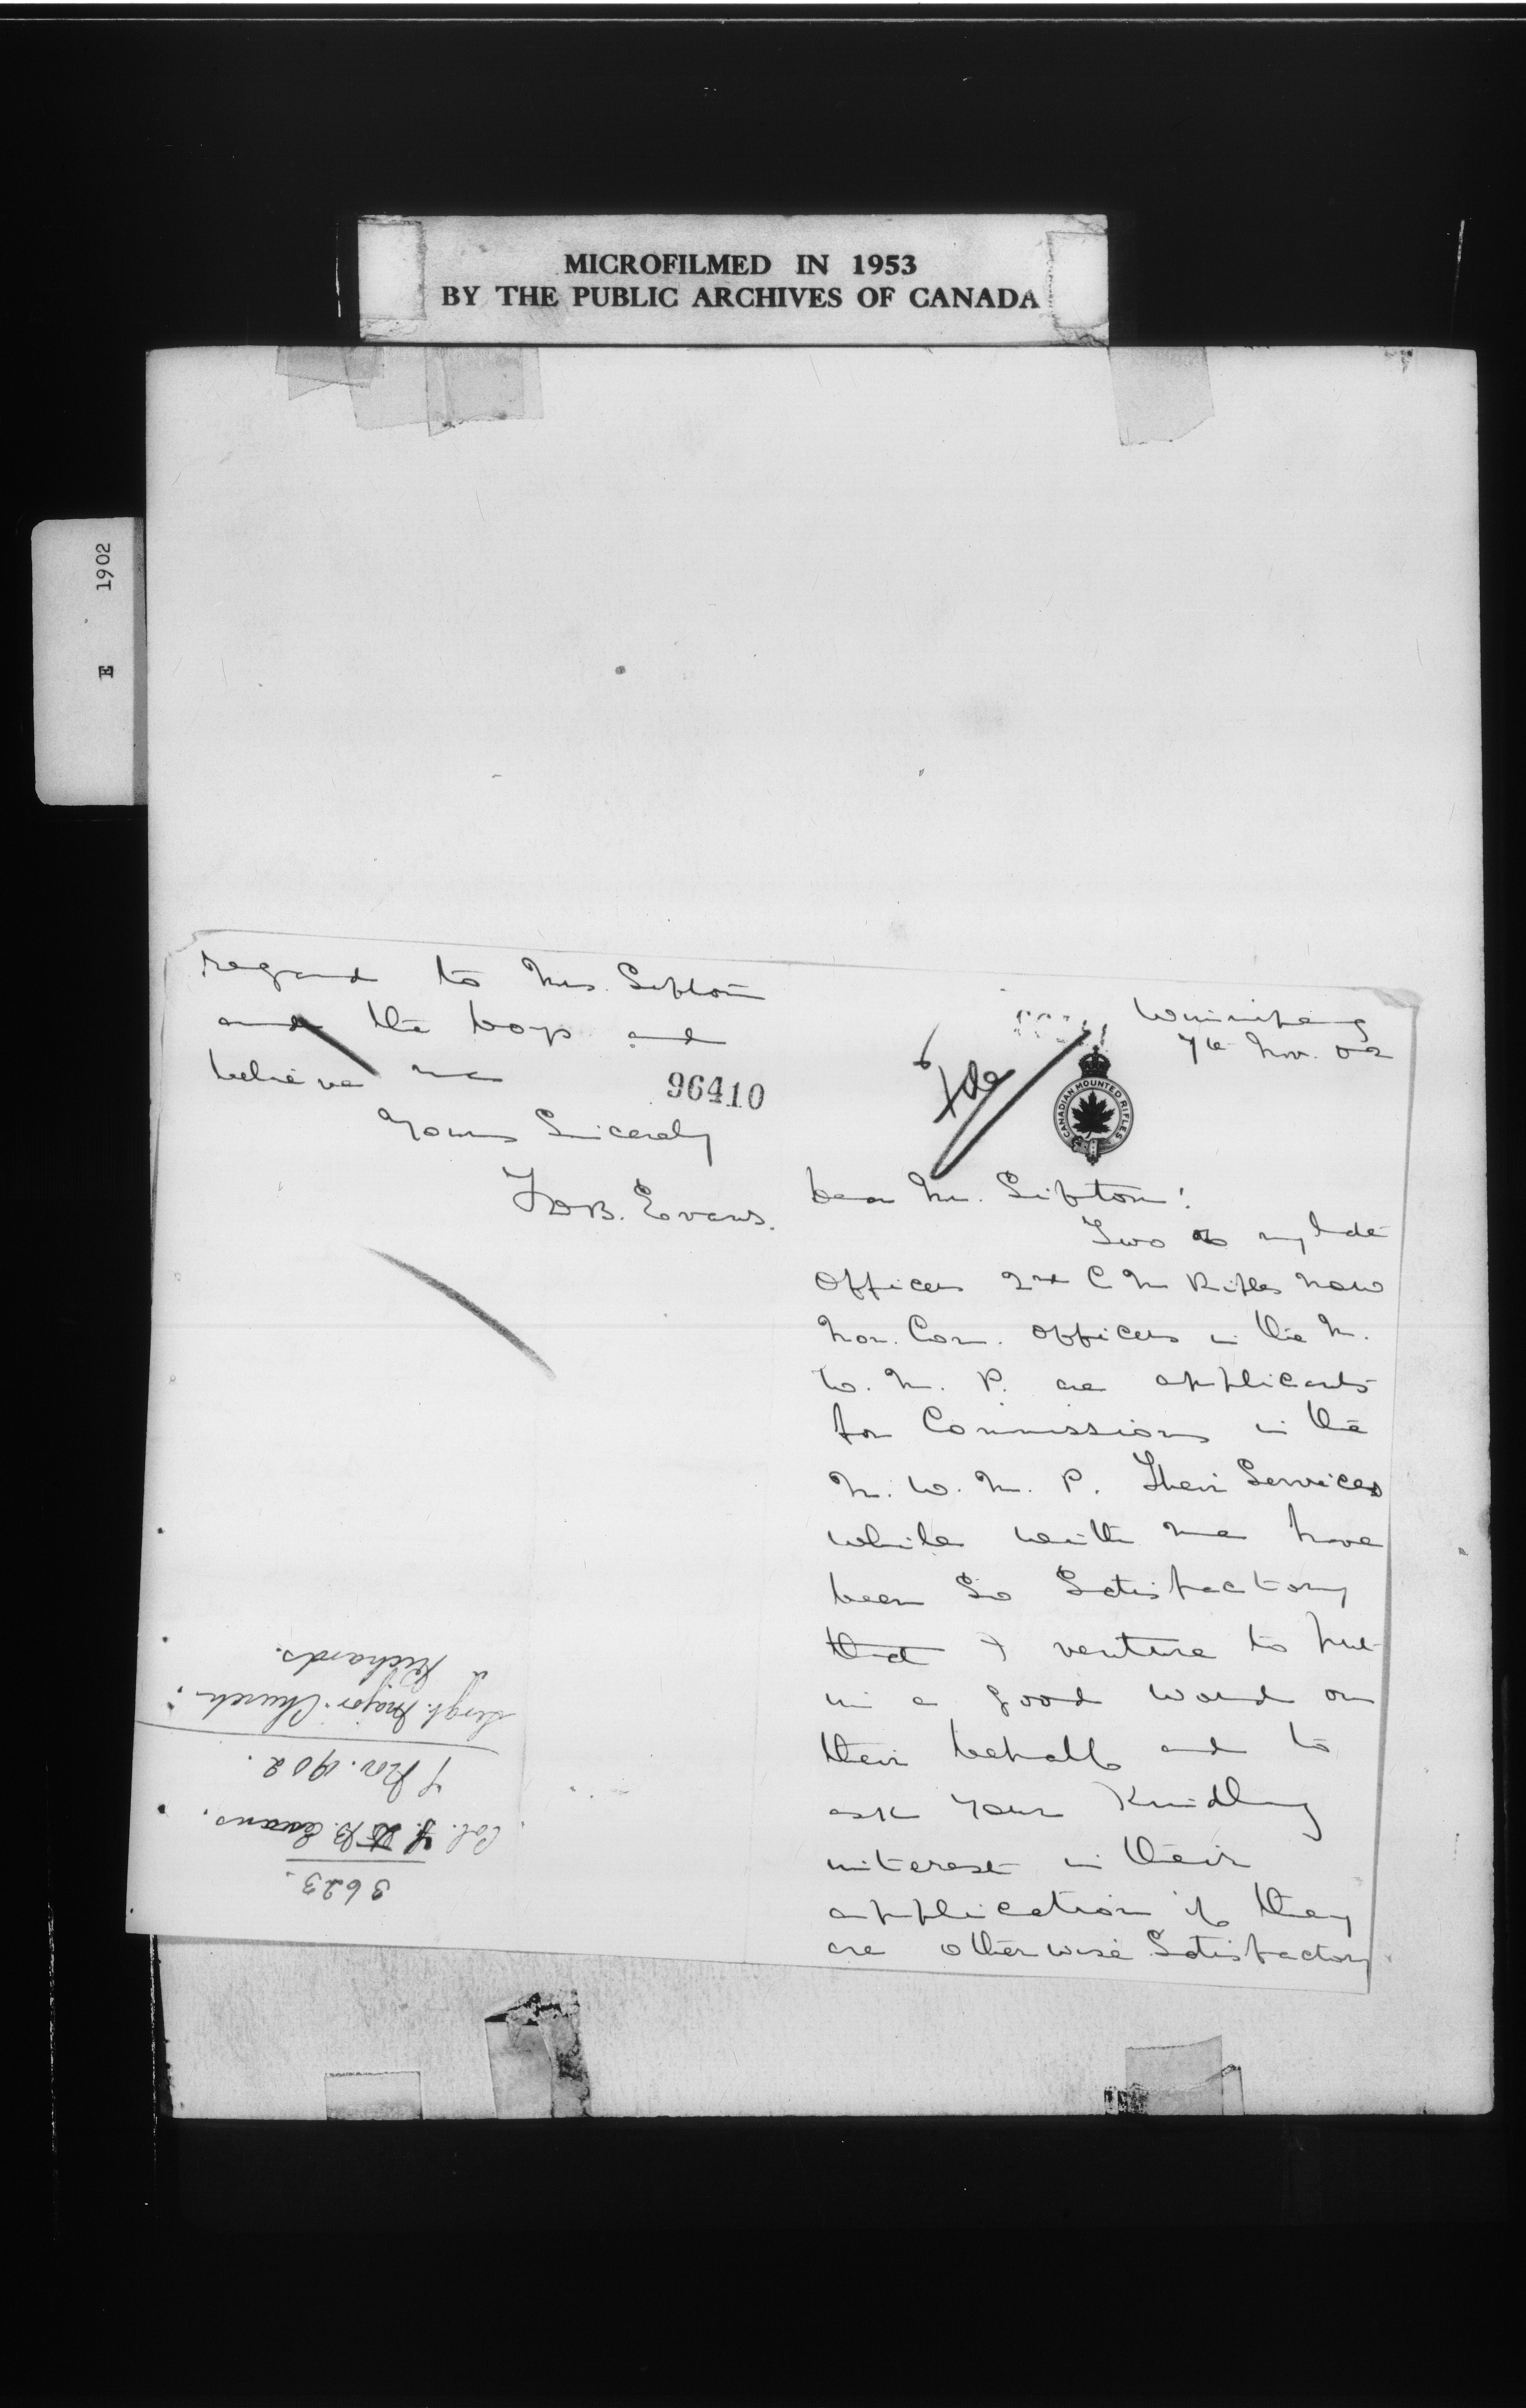 MICROFILMED IN 1953
BY THE PUBLIC ARCHIVES OF CANADA
E 1902
Winnipeg
7th Nov. 02
CANADIAN MOUNTED RIFLES
Dear Mr. Sifton!
Two of my late
Officers 2nd C M Rifles now
Non. Com. Officers in the N.
W. M. P. are applicants
for Commissions in the
N. W. M. P. Their Services
while with me have
been So Satisfactory
that I venture to put
in a good word on
their behalf and to
ask your Kindly
interest in their
application if they
are otherwise Satisfactory
regard to Mrs. Sifton
and the boys and
believe me
96410
Yours Sincerely
TDB. Evans.
3623.
Col. T. D B. Evans.
7 Nov. 1902.
Sergt. Major Church
& Richards.